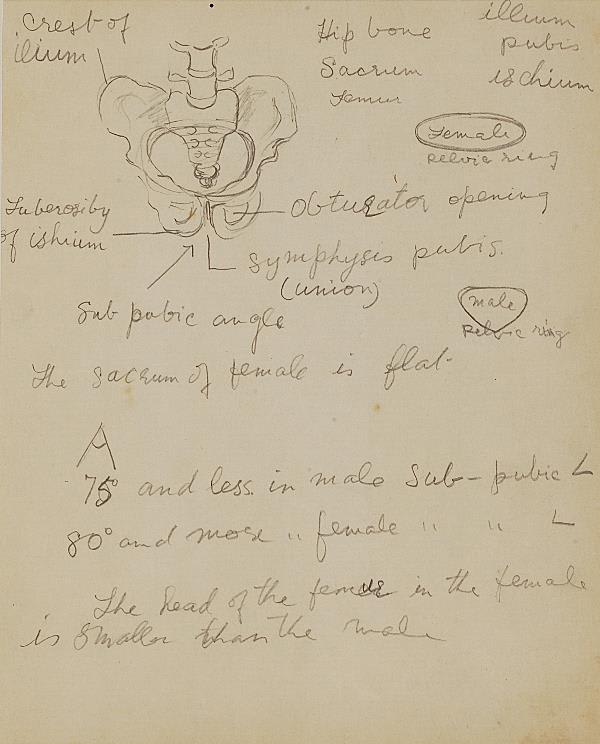 Crest of
ilium
Hip bone
Sacrum
Femur
illium
pubis
ischium
Female
pelvic ring
Tuberosiby
of ishium
obturator opening
symphysis pubis.
(union)
Sub pubic angle
male
pelvic ring
The sacrum of female is flat-
75° and less. in male Sub-pubic L
80° and more " female " " L
The head of the femur in the female
is smaller than the male